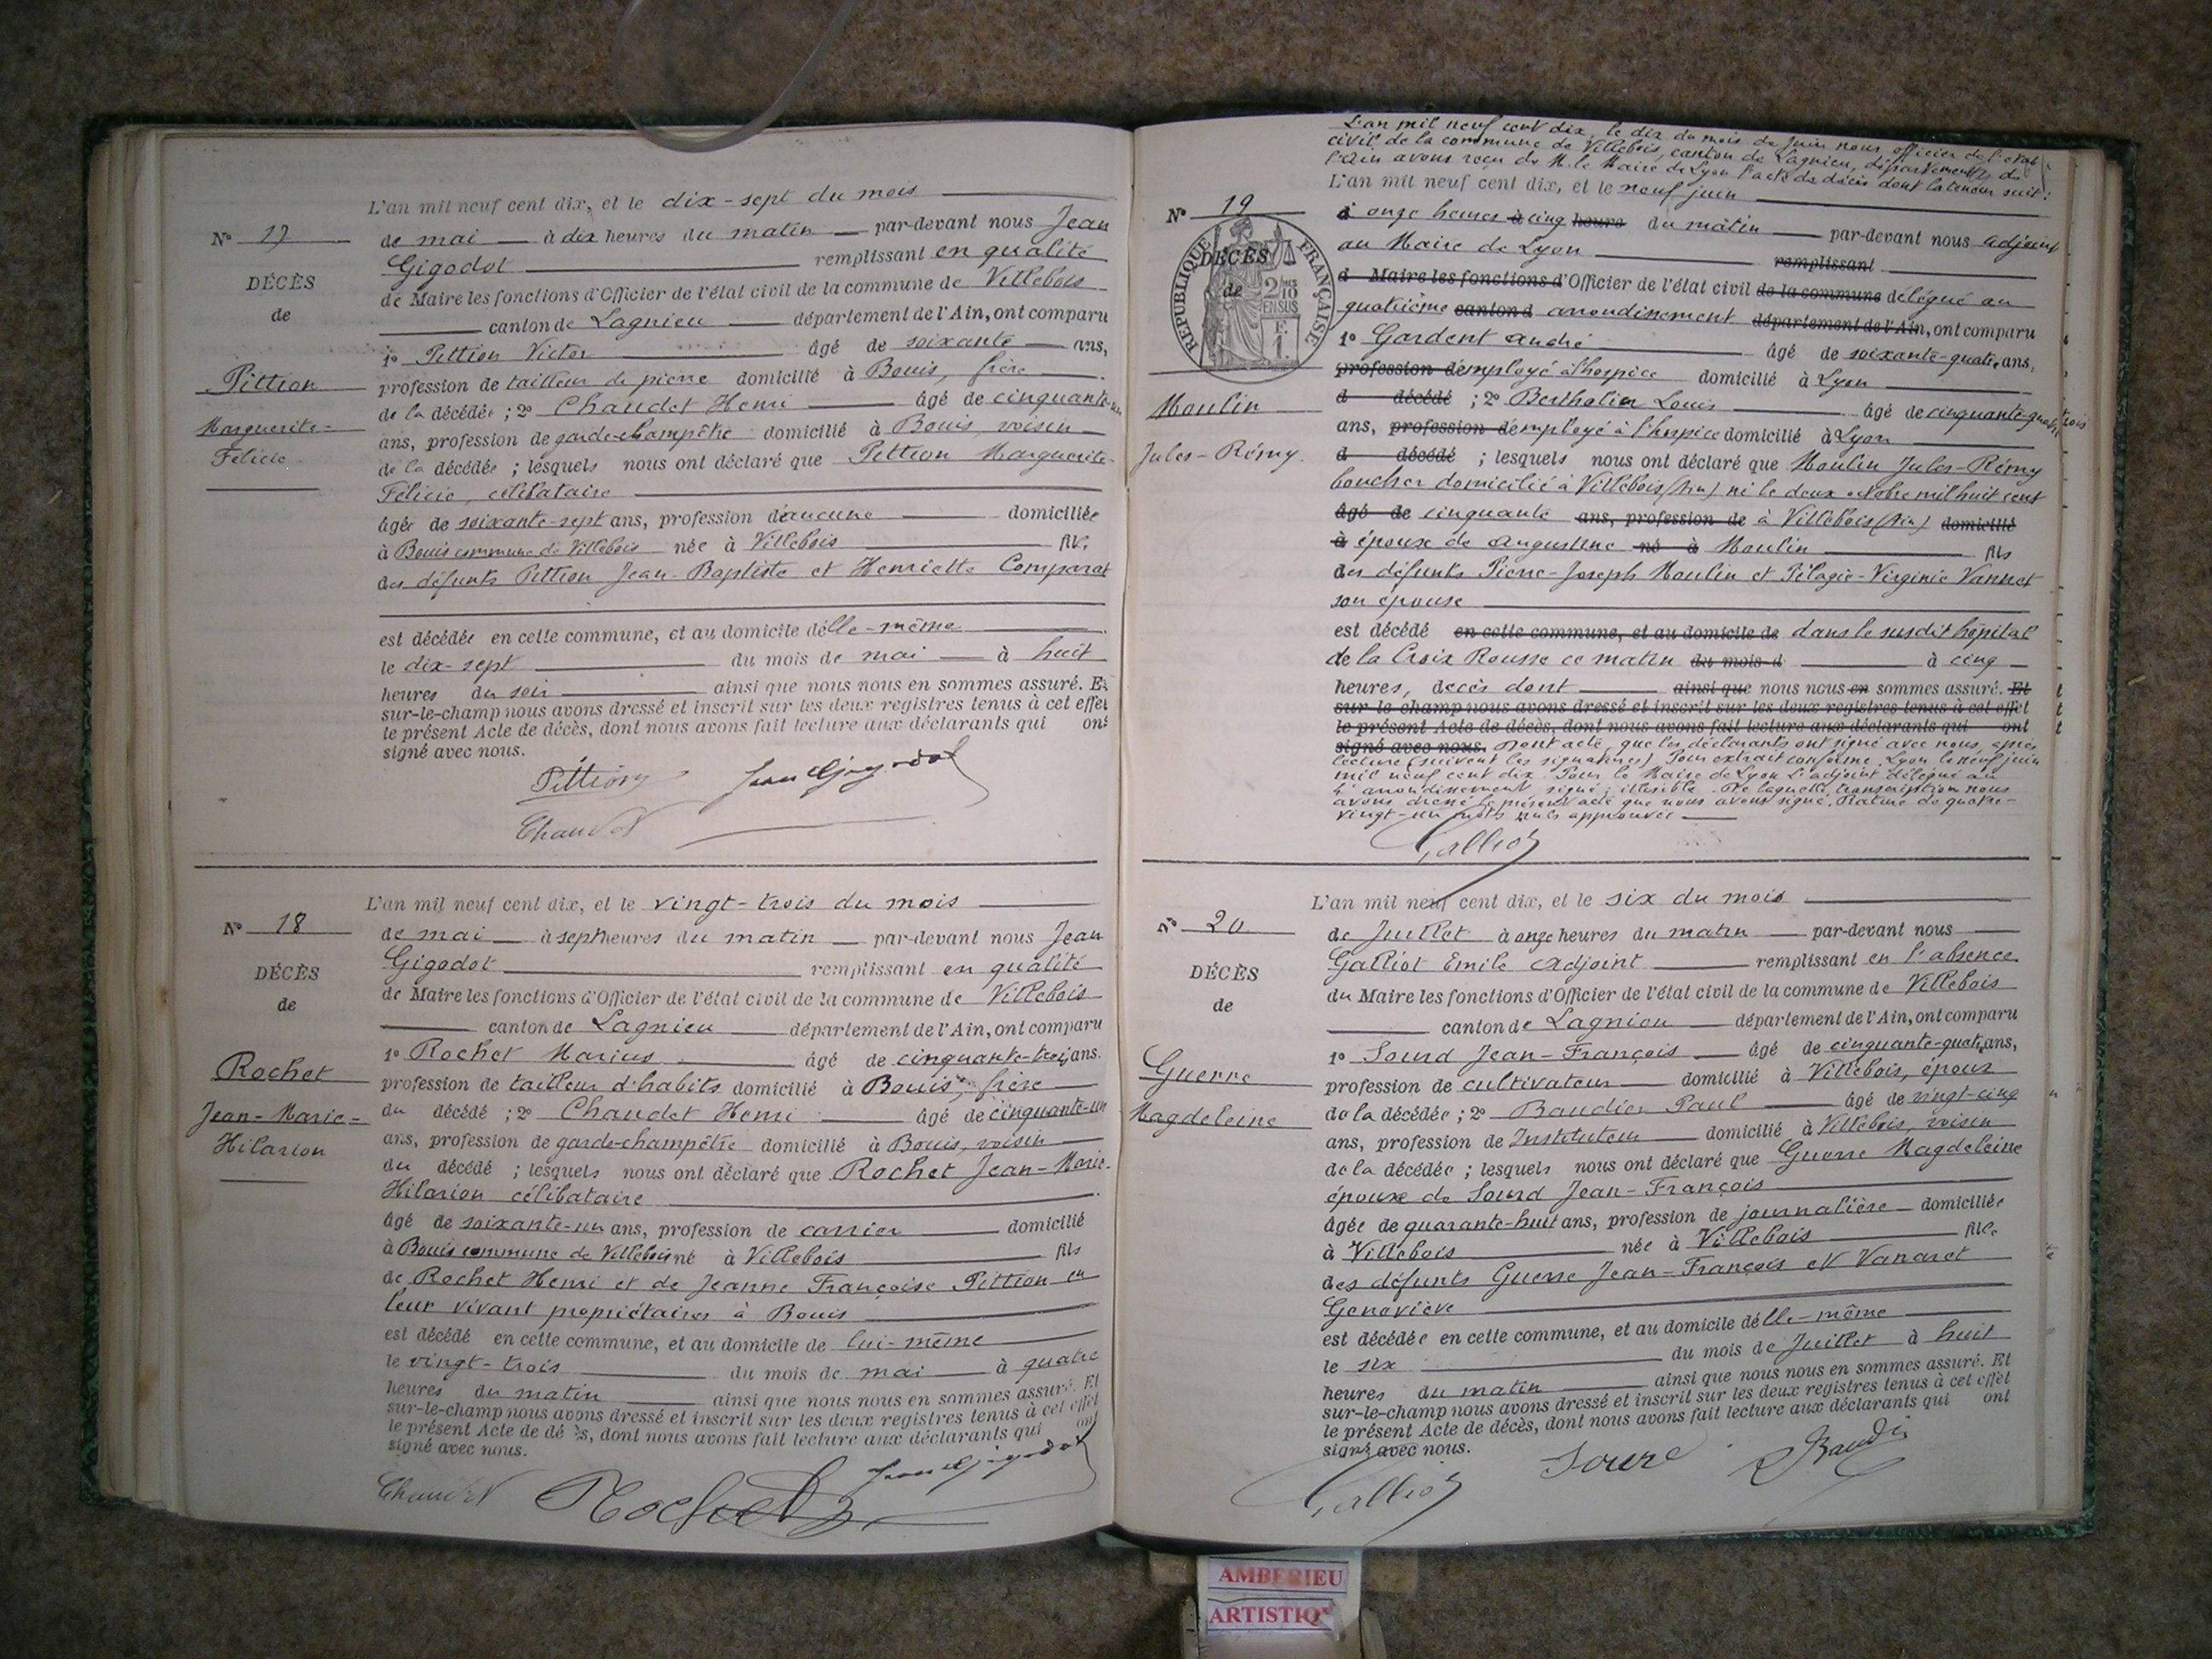 L'an mil neuf cent dix, et le dix-sept du mois
N° 17
de mai à dix heures du matin par-devant nous Jean
Gigodot remplissant en qualité
DÉCÈS
de Maire les fonctions d'Officier de l'état civil de la commune de Villebois
de
canton de Lagnieu département de l'Ain, ont comparu
1° Pittion Victor âgé de soixante ans,
Pittion
profession de tailleur de pierre domicilié à Bouis, frère
de la décédée ; 2° Chaudet Henri âgé de cinquante-un
Marguerite-
ans, profession de garde-champêtre domicilié à Bouis, voisin
Félicie
de la décédée ; lesquels nous ont déclaré que Pittion Marguerite-
Félicie, célibataire
âgée de soixante-sept ans, profession d'aucune domiciliée
à Bouis commune de Villebois née à Villebois fille
des défunts Pittion Jean-Baptiste et Henriette Comparat
est décédée en cette commune, et au domicile d'elle-même
le dix-sept du mois de mai à huit
heures du soir ainsi que nous nous en sommes assuré. Et
sur-le-champ nous avons dressé et inscrit sur les deux registres tenus à cet effet
le présent Acte de décès, dont nous avons fait lecture aux déclarants qui ont
signé avec nous.
Pittion Jean Gigodot
Chaudet
L'an mil neuf cent dix, et le vingt-trois du mois
N° 18
de mai à sept heures du matin par-devant nous Jean
Gigodot remplissant en qualité
DÉCÈS
de Maire les fonctions d'Officier de l'état civil de la commune de Villebois
de
canton de Lagnieu département de l'Ain, ont comparu
1° Rochet Marius âgé de cinquante-trois ans.
Rochet
profession de tailleur d'habits domicilié à Bouis, frère
du décédé ; 2° Chaudet Henri âgé de cinquante-un
Jean-Marie-
ans, profession de garde-champêtre domicilié à Bouis, voisin
Hilarion
du décédé ; lesquels nous ont déclaré que Rochet Jean-Marie-
Hilarion célibataire
âgé de soixante-un ans, profession de carrier domicilié
à Bouis commune de Villebois né à Villebois fils
de Rochet Henri et de Jeanne Françoise Pittion en
leur vivant propriétaires à Bouis
est décédé en cette commune, et au domicile de lui-même
le vingt-trois du mois de mai à quatre
heures du matin ainsi que nous nous en sommes assuré. Et
sur-le-champ nous avons dressé et inscrit sur les deux registres tenus à cet effet
le présent Acte de décès, dont nous avons fait lecture aux déclarants qui ont
signé avec nous.
Chaudet Rochet Jean Gigodot
L'an mil neuf cent dix, le dix du mois de juin nous officier de l'état
civil de la commune de Villebois, canton de Lagnieu, département de
l'Ain avons reçu de M. le Maire de Lyon l'acte de décès dont la teneur suit :
L'an mil neuf cent dix, et le neuf juin
N° 19
à onze heures à cinq heure du matin par-devant nous adjoint
au Maire de Lyon remplissant
DÉCÈS
de
RÉPUBLIQUE FRANÇAISE
2/10 EN SUS
F. 1.
d Maire les fonctions d'Officier de l'état civil de la commune délégué au
quatrième canton d arrondissement département de l'Ain, ont comparu
1° Gardent André âgé de soixante-quatre ans,
profession d'employé à l'hospice domicilié à Lyon
Moulin
d décédé ; 2° Berthelier Louis âgé de cinquante-
ans, profession d'employé à l'hospice domicilié à Lyon
Jules-Rémy.
d décédé ; lesquels nous ont déclaré que Moulin Jules-Rémy
boucher domicilié à Villebois (Ain) né le deux octobre mil huit cent
âgé de cinquante ans, profession de à Villebois (Ain) domicilié
à époux de Augustine né à Moulin fils
des défunts Pierre-Joseph Moulin et Pélagie-Virginie Vannet
son épouse
est décédé en cette commune, et au domicile de dans le susdit hôpital
de la Croix Rousse ce matin du mois d à cinq
heures, décès dont ainsi que nous nous en sommes assuré. Et
sur-le-champ nous avons dressé et inscrit sur les deux registres tenus à cet effet
le présent Acte de décès, dont nous avons fait lecture aux déclarants qui ont
signé avec nous. Dont acte, que les déclarants ont signé avec nous, après
lecture (suivent les signatures) Pour extrait conforme, Lyon le neuf juin
mil neuf cent dix Pour le Maire de Lyon L'adjoint délégué au
4e arrondissement signé : illisible. De laquelle transcription nous
avons dressé le présent acte que nous avons signé. Rature de quatre-
vingt-un mots nuls approuvée
Galliot
L'an mil neuf cent dix, et le six du mois
N° 20
de Juillet à onze heures du matin par-devant nous
Galliot Emile Adjoint remplissant en l'absence
DÉCÈS
du Maire les fonctions d'Officier de l'état civil de la commune de Villebois
de
canton de Lagnieu département de l'Ain, ont comparu
1° Sourd Jean-François âgé de cinquante-quatre ans,
Guerre
profession de cultivateur domicilié à Villebois, époux
Magdeleine
de la décédée ; 2° Baudier Paul âgé de vingt-cinq
ans, profession de Instituteur domicilié à Villebois, voisin
de la décédée ; lesquels nous ont déclaré que Guerre Magdeleine
épouse de Sourd Jean-François
âgée de quarante-huit ans, profession de journalière domiciliée
à Villebois née à Villebois fille
des défunts Guerre Jean-François et Vanaret
Geneviève
est décédée en cette commune, et au domicile d'elle-même
le six du mois de Juillet à huit
heures du matin ainsi que nous nous en sommes assuré. Et
sur-le-champ nous avons dressé et inscrit sur les deux registres tenus à cet effet
le présent Acte de décès, dont nous avons fait lecture aux déclarants qui ont
signé avec nous.
Galliot Sourd Baudier
AMBERIEU
ARTISTIQ